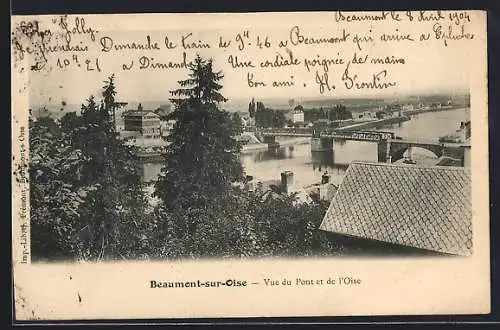 Beaumont le 8 Avril 1904
Mon cher Jolly
Je prendrais Dimanche le train de 9h. 46 à Beaumont qui arrive à Epluches
à 10h 21 à Dimanche. Une cordiale poignée de mains
ton ami. H. Frontin
Imp.-Libr. Frémont, Beaumont-s-Oise
Beaumont-sur-Oise — Vue du Pont et de l'Oise